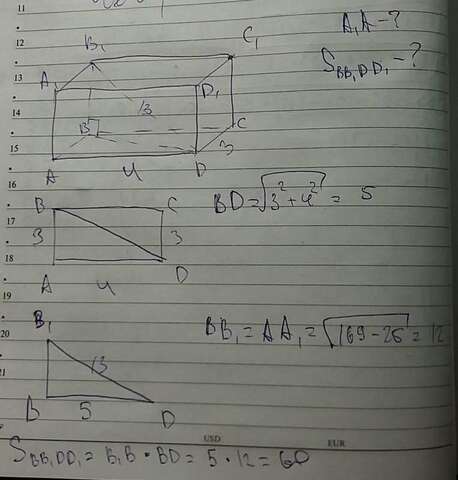 11
12
13
14
15
16
17
18
19
20
21
A₁A - ?
S_BB₁DD₁ - ?
B₁
C₁
A₁
D₁
13
B
C
3
A
4
D
BD = √3² + 4² = 5
B
C
3
3
A
4
D
B₁
13
BB₁ = AA₁ = √169 - 25 = 12
B
5
D
USD
EUR
S_BB₁DD₁ = B₁B • BD = 5 • 12 = 60